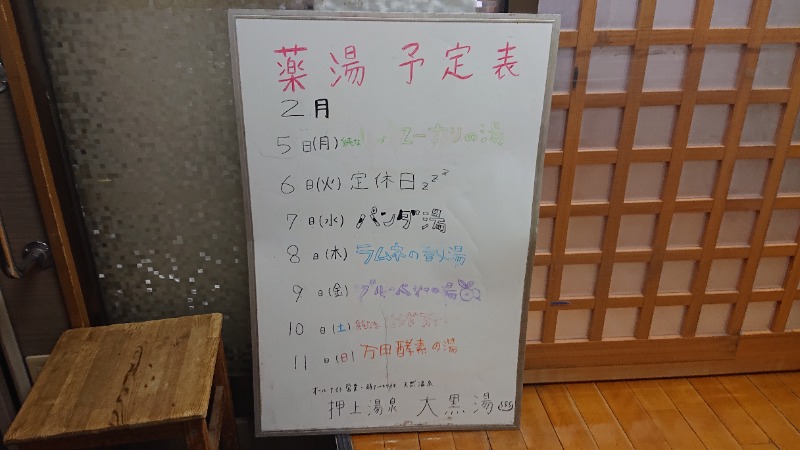 薬湯 予定表
2月
5日(月) の湯
6日(火) 定休日zzz
7日(水) パンダ湯
8日(木) ラムネの湯
9日(金) ブルーベリーの湯
10日(土)
11日(日) 万田酵素の湯
オールナイト営業
押上温泉 大黒湯